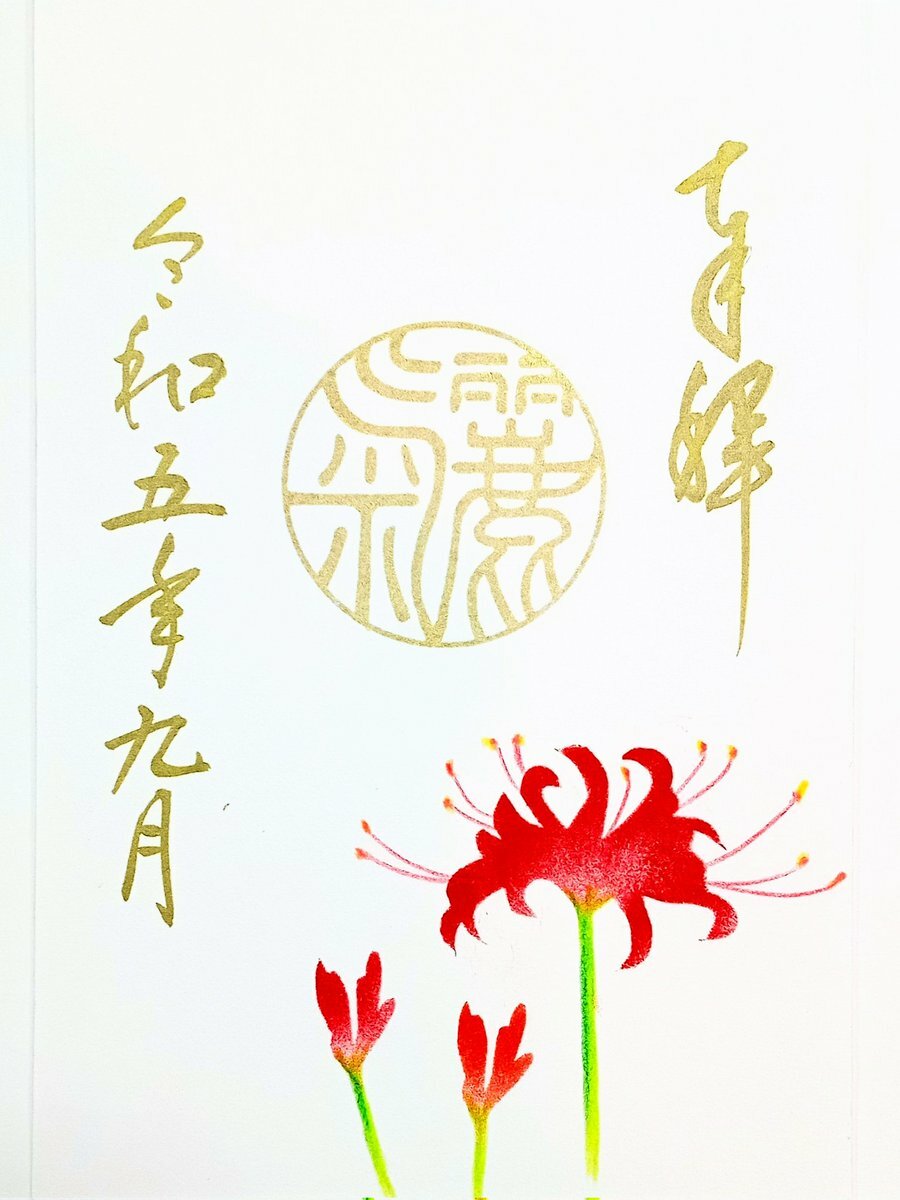 奉拜
令和五年九月